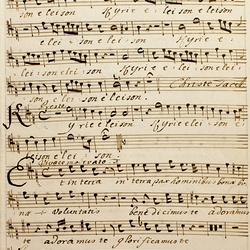 son elei son Kyrie e lei son
e lei son elei son Kyrie e
lei son elei son Kyrie e lei son elei
son elei son e lei son Christe Tacet
Kyrie eleison Kyrie elei son
eleison elei son
Et in terra in terra pax hominibus bonae
nae voluntatis benedicimus te adoramus
te adoramus te glorificamus te